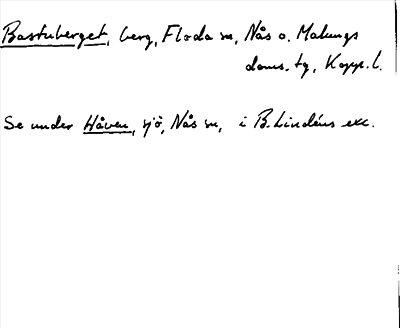 Bastuberget, berg, Floda sn, Nås o. Malungs
doms. tg, Kopp. l.
Se under Håven, sjö, Nås sn, i B. Lindéns exc.